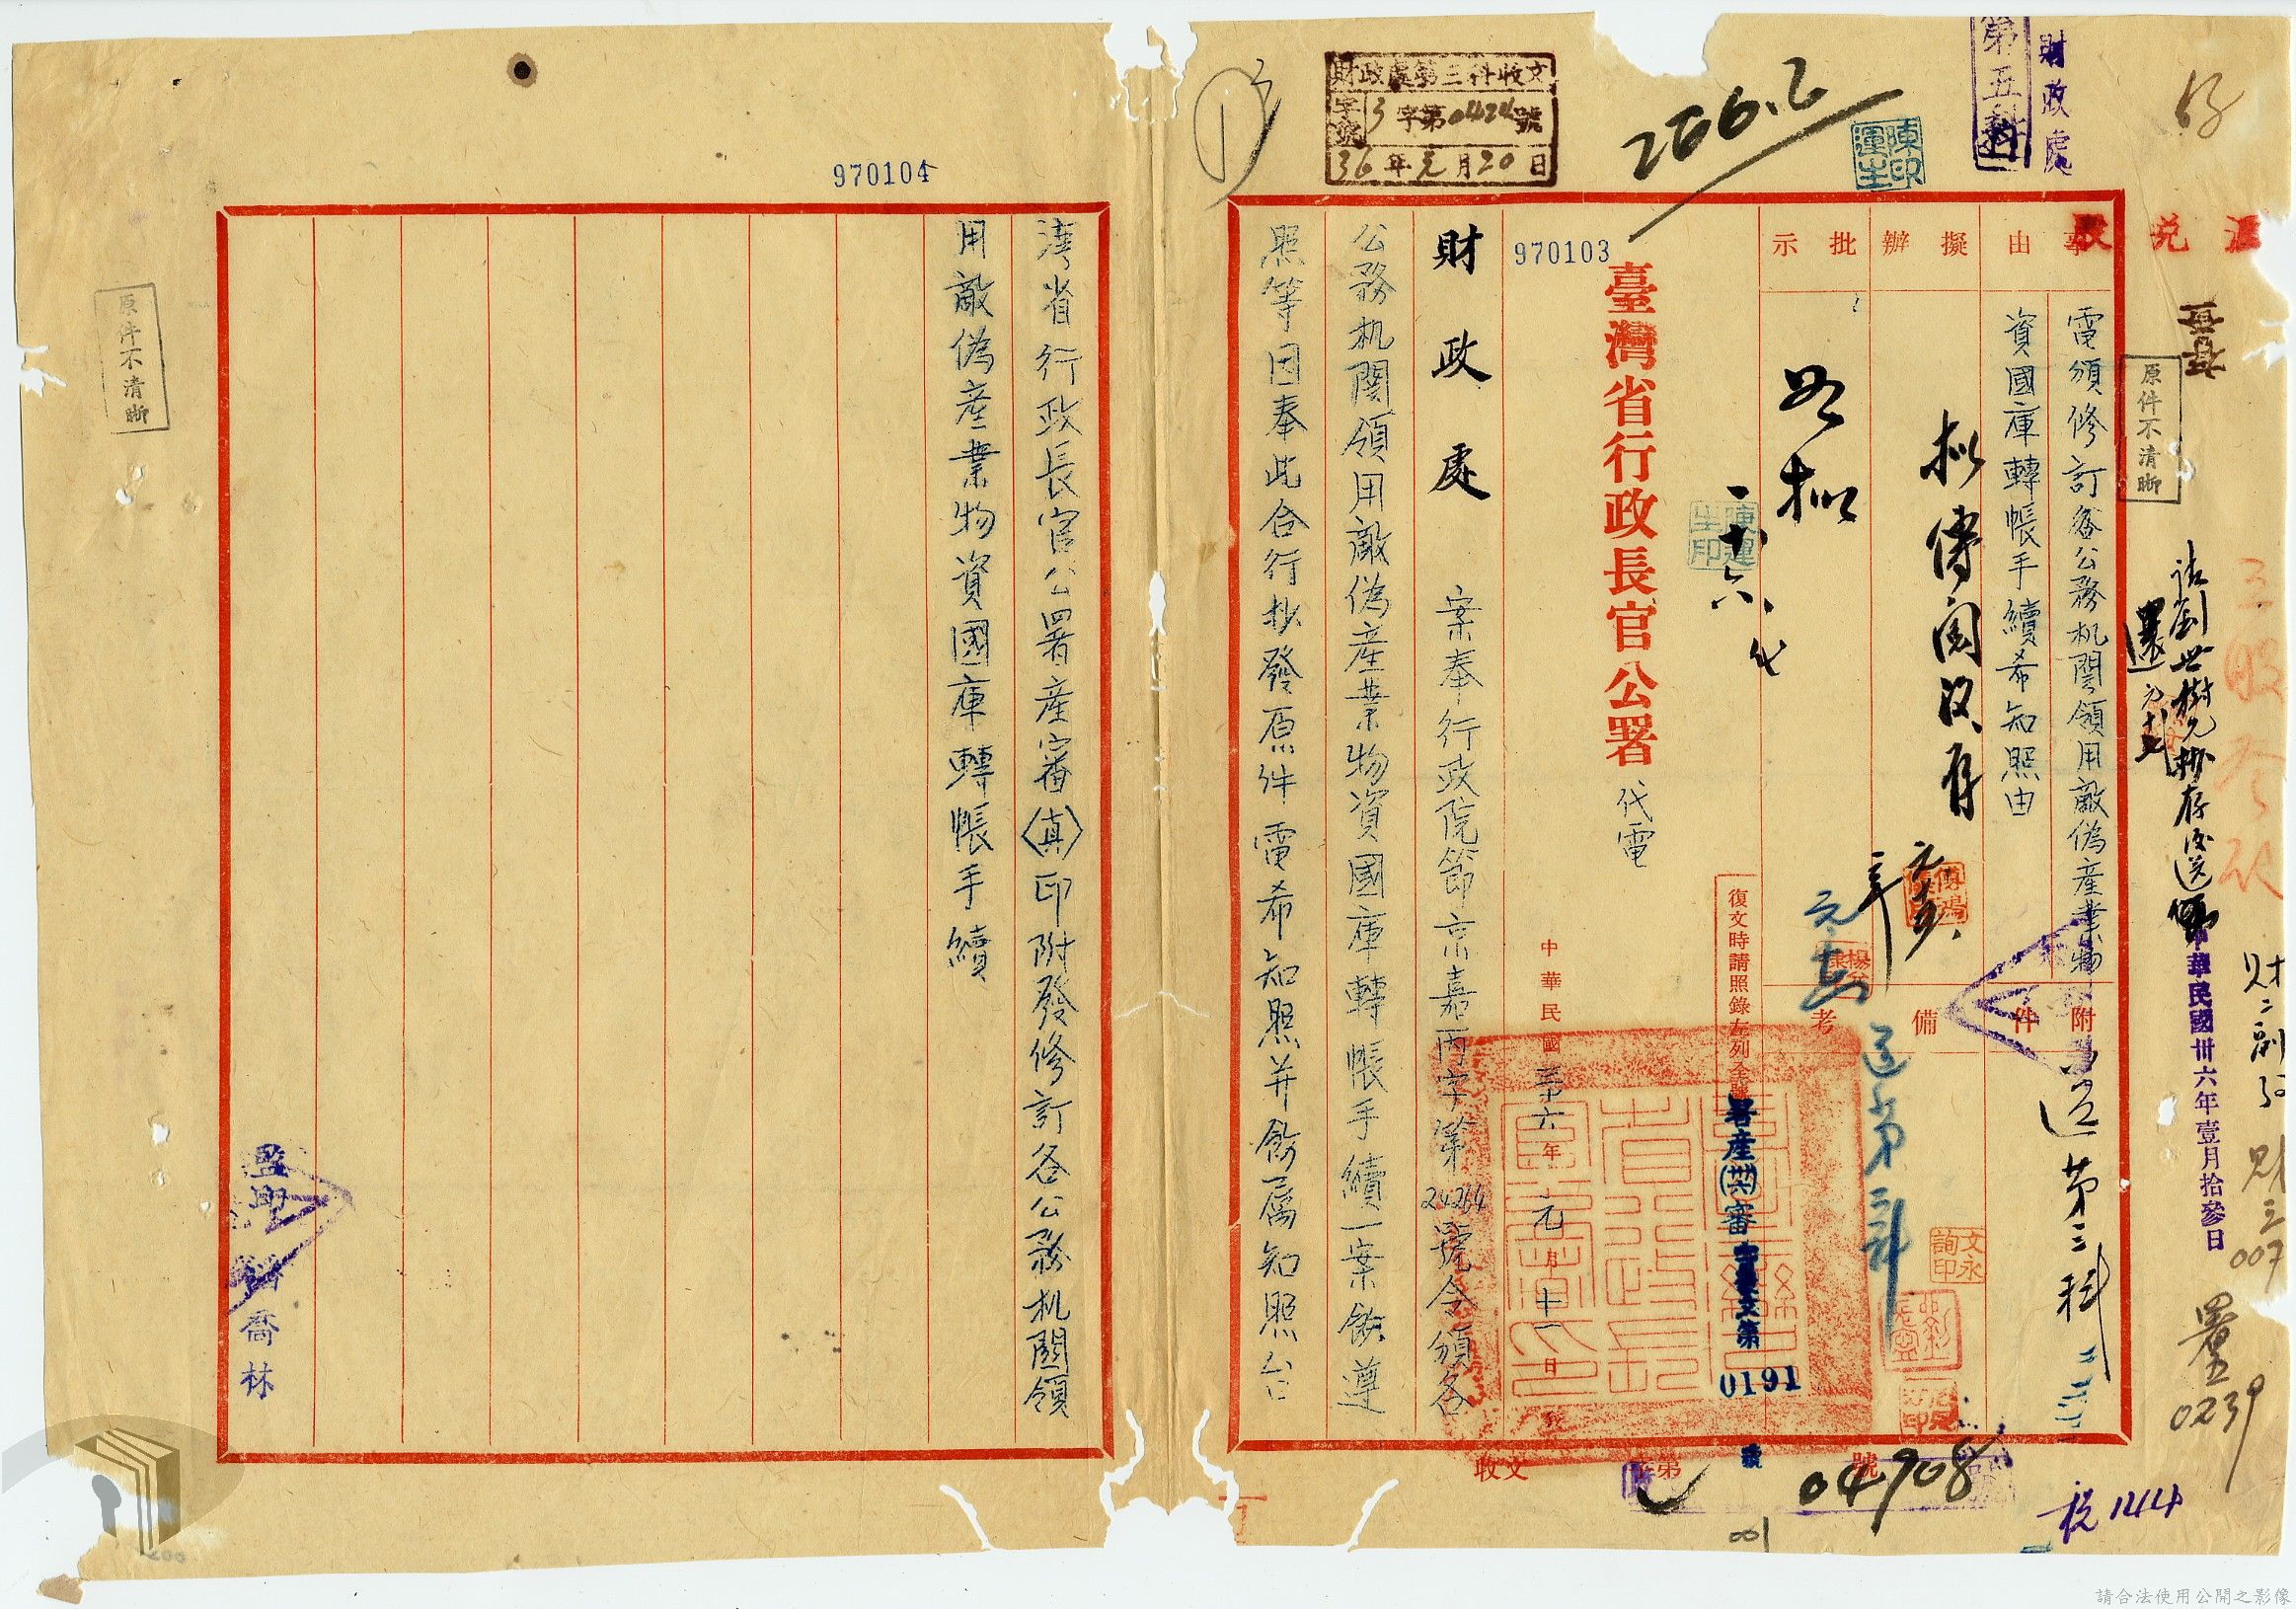 財政處
第五科
財政處第三科收文
字號 3字第0424號
36年元月20日
256.2
陳運生印
970103
970104
事由
擬辦
批示
電頒修訂各公務机関領用敵偽產業物
資國庫轉帳手續希知照由
附件
備考
如拟
一、十六、代
送第三科
臺灣省行政長官公署
代電
復文時請照錄左列全號
署產(卅六)審字發文第
0191
號
中華民國卅六年元月十一日
財政處
案奉行政院節京嘉丙字第24264號令頒各
公務机関領用敵偽產業物資國庫轉帳手續一案飭遵
照等因奉此合行抄發原件電希知照并飭屬知照台
灣省行政長官公署產審〈真〉印附發修訂各公務机関領
用敵偽產業物資國庫轉帳手續
監印
喬林
中華民國卅六年壹月拾參日
原件不清晰
原件不清晰
文永詢印
收文
字第
號
04908
0239
007
001
請合法使用公開之影像